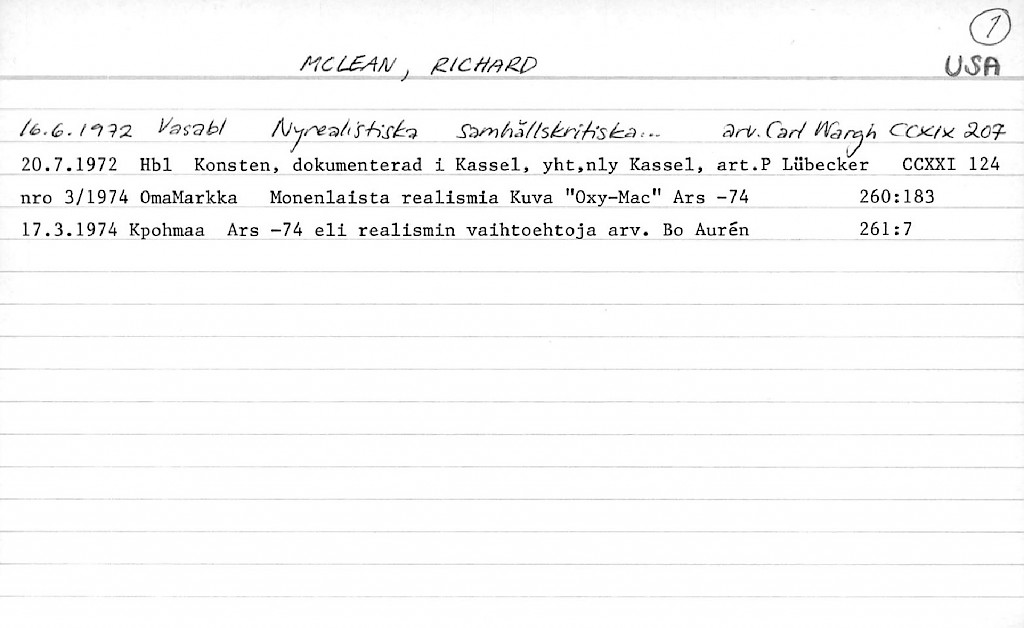 1
MCLEAN, RICHARD USA
16.6.1972 Vasabl Nyrealistiska samhällskritiska... arv. Carl Wargh CCXIX 207
20.7.1972 Hbl Konsten, dokumenterad i Kassel, yht,nly Kassel, art.P Lübecker CCXXI 124
nro 3/1974 OmaMarkka Monenlaista realismia Kuva "Oxy-Mac" Ars -74 260:183
17.3.1974 Kpohmaa Ars -74 eli realismin vaihtoehtoja arv. Bo Aurén 261:7